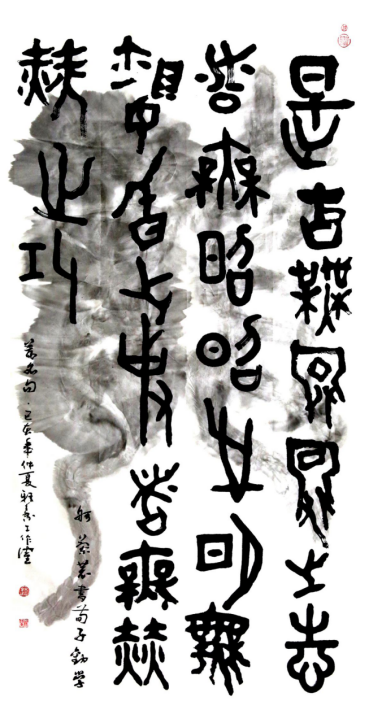 是古無冥冥之志
者無昭昭之明無
昏之事者無赫
赫之功
書荀子勸學
篇名句 己亥年仲夏 工作室